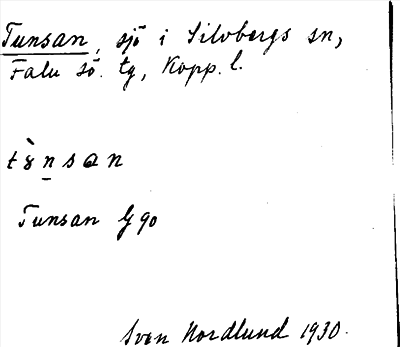 Tunsan, sjö i Silvbergs sn,
Falu sö. tg, Kopp. l.
tȣ̀n̲san
Tunsan G 90
Sven Nordlund 1930.